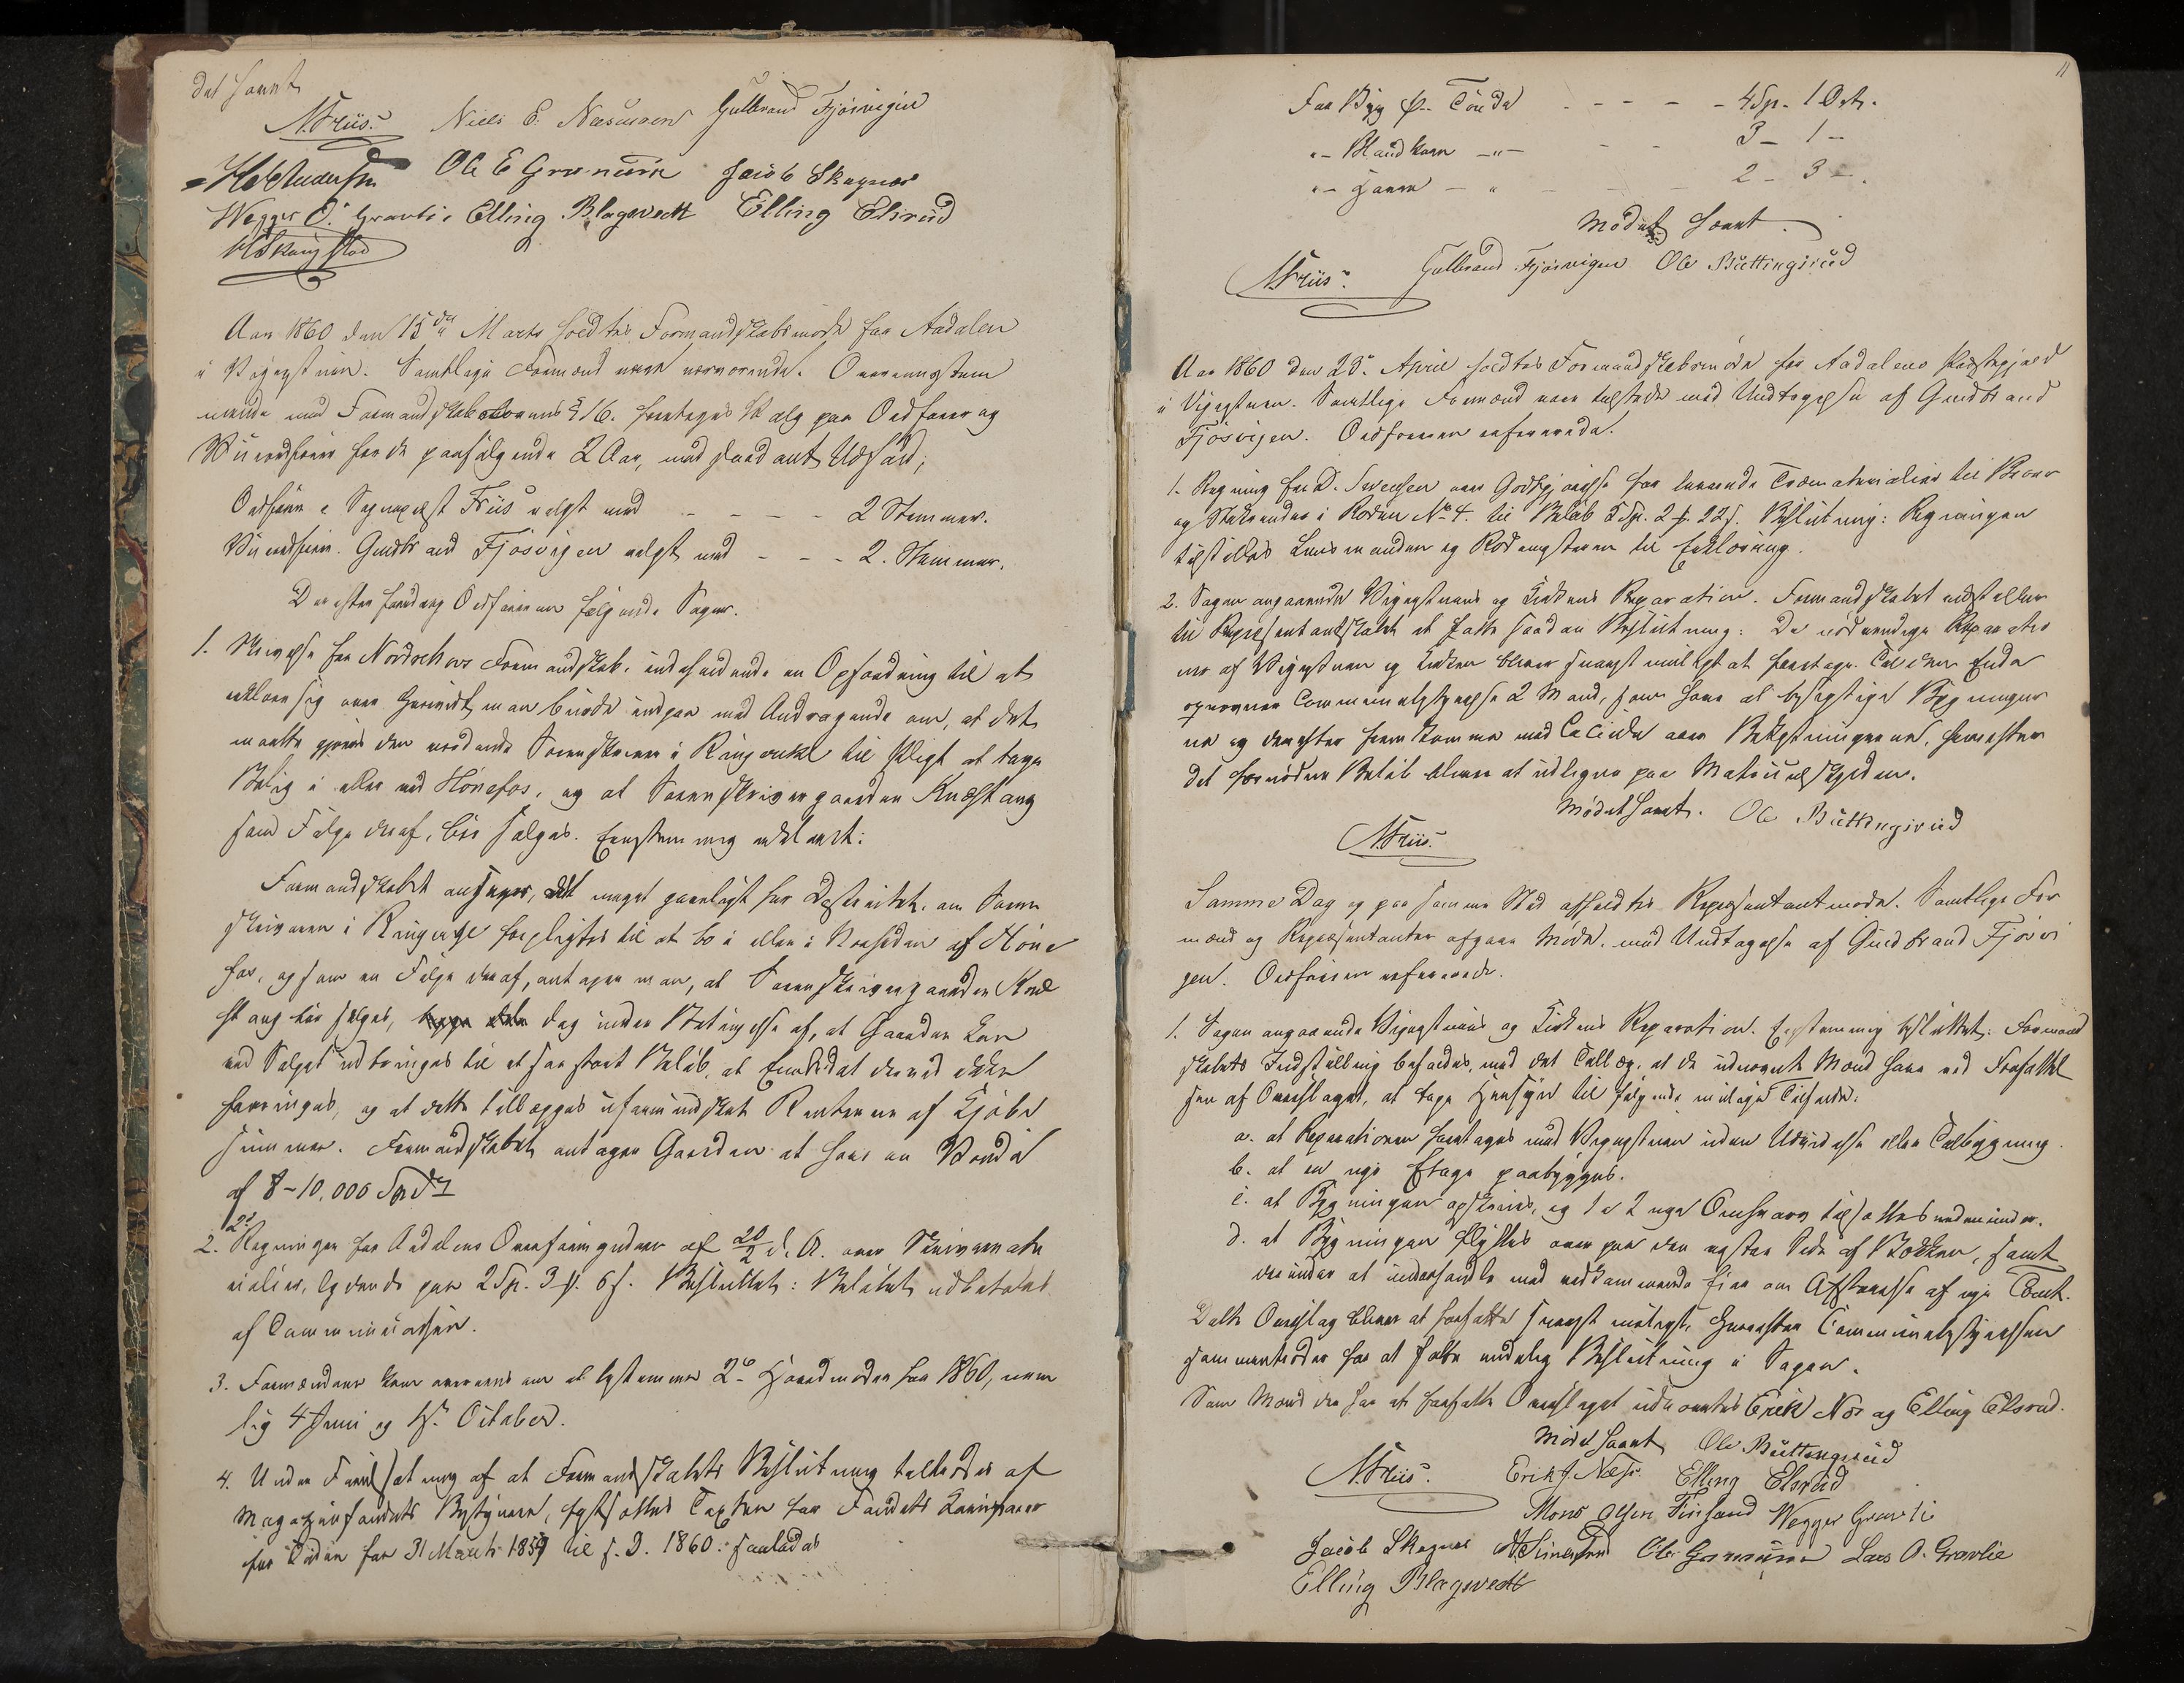 det hævet
N. Friis. Niels E. Næsmoen Gulbrand Fjösvigen
Ole E Granum Jacob Skagnæs
Wegger O. Gravli Elling Blagsvedt Elling Elsrud
Aar 1860 den 15de Marts holdtes Formandskabsmøde for Aadalen
i Vigerstuen. Samtlige Formænd vare nærværende. Overeensstem
mende med Formandskabslovens § 16. foretoges Valg paa Ordfører og
Viceordfører for de paafølgende 2 Aar, med saadant Udfald;
Ordfører e Sogneprest Friis valgt med - - - - 2 Stemmer.
Viceordfører. Guldbrand Fjösvigen valgt med - - - 2. Stemmer.
Derefter foredrog Ordføreren følgende Sager.
1. Skrivelse fra Norderhovs Formandskab, indeholdende en Opfordring til at
erklære sig over hvorvidt man burde indgaa med Andragende om, at det
maatte gjøres den vordende Sorenskriver i Ringerike til Pligt at tage
Bolig i eller ved Hönefos, og at Sorenskrivergaarden Knestang
som Følge deraf, bør sælges. Eenstemmig erklæret:
Formandskabet ansees, det meget gavnligt for Distriktet, om Soren
skriveren i Ringerige forpligtes til at bo i eller i Nærheden af Höne
fos, og som en Følge deraf, antager man, at Sorenskrivergaarden Kne
stang bør sælges, dog under Betingelse af, at Gaarden kan
ved Salget udbringes til et saa stort Beløb, at Embedet derved ikke
forringes, og at dette tillægges uformindsket Renterne af Kjøbe
summen. Formandskabet antager Gaarden at have en Værdi
af 8-10,000 Spd
2. Regningen fra Aadalens Overformynder af 20/2 d. A. over Skrivemate
rialier, lydende paa 2 Sp. 3 ß. 6 s. Besluttet: Beløbet udbetales
af Communecassen.
3. Formændene kom overeens om at bestemme 2de Hovedmøder for 1860, nem
lig 4 Juni og 1st October.
4. Under Forudsætning af at Formandskabets Beslutning tiltrædes af
Magazinfondets Bestyrere, fastsættes Taxten for Fondets Kornvarer
for Tiden fra 31 Marts 1859 til s. D. 1860: saaledes
11
For Byg pr. Tönde - - - - - 4 Sp. 1 Ort.
"- Blandkorn -"- - - 3 - 1 -
"- Havre - " - - - 2 - 3 -.
Mödet hævet.
N. Friis. Gulbrand Fjösvigen Ole Buttingsrud
Aar 1860 den 23. April holdtes Formandskabsmöde for Aadalens Præstegjæld
i Vigerstuen. Samtlige Formænd vare tilstede med Undtagelse af Guldbrand
Fjösvigen. Ordføreren refererede.
1. Regning fra D. Svendsen over Godtgjørelse for leverede Træmaterialier til Broer
og Stakender i Roden No 4. til Beløb 5 Sp. 2 ß. 22 s. Beslutning: Regningen
tilstilles Lensmanden og Rodemesteren til Erklæring.
2. Sagen angaaende Vigerstuens og Kirkens Reparation. Formandskabet indstiller
til Repræsentantskabet at fatte saadan Beslutning: De nødvendige Reparatio
ner af Vigerstuen og Kirken bliver snarest muligt at foretage. Til den Ende
opnævner Communebestyrelsen 2 Mænd, som have at besigtige Bygninger
ne og derefter fremkomme med Calcule over Bekostningerne, hvorefter
det fornødne Beløb bliver at udligne paa Matriculskylden.
Mödet hævet. Ole Buttingsrud
N. Friis.
Samme Dag og paa samme Sted afholdtes Repræsentantmøde. Samtlige For
mænd og Repræsentanter afgave Möde, med Undtagelse af Guldbrand Fjösvi
gen. Ordføreren refererede.
1. Sagen angaaende Vigerstuens og Kirkens Reparation. Eenstemmig besluttet: Formand
skabets Indstilling befaldes, med det Tillæg, at de udnævnte Mænd have ved Forfattel
sen af Overslaget, at tage Hensyn til følgende mulige Tilfælde:
a. at Reparationen foretages med Vigerstuen uden Udvidelse eller Tilbygning.
b. at en nye Etage paabygges.
c. at Bygningen opskrues, og 1 a 2 nye Omhvarv tilsættes nedenunder.
d. at Bygningen flyttes over paa den østre Side af Bækken, samt
derunder at underhandle med vedkommende Eier om Afstaaelse af nye Tomt.
Dette Overslag bliver at forfatte snarest muligst, hvorefter Communebestyrelsen
sammentræder for at fatte endelig Beslutning i Sagen.
Som Mænd der har at forfatte Overslaget udnævntes Erik Næs og Elling Elsrud.
Mödet hævet Ole Buttengsrud
N. Friis. Erik J. Næss. Elling Elsrud
Mons Olsen Finsand Wegger Gravli
Jacob Skagnæs Lars O. Gravlie
Elling Blagsvedt